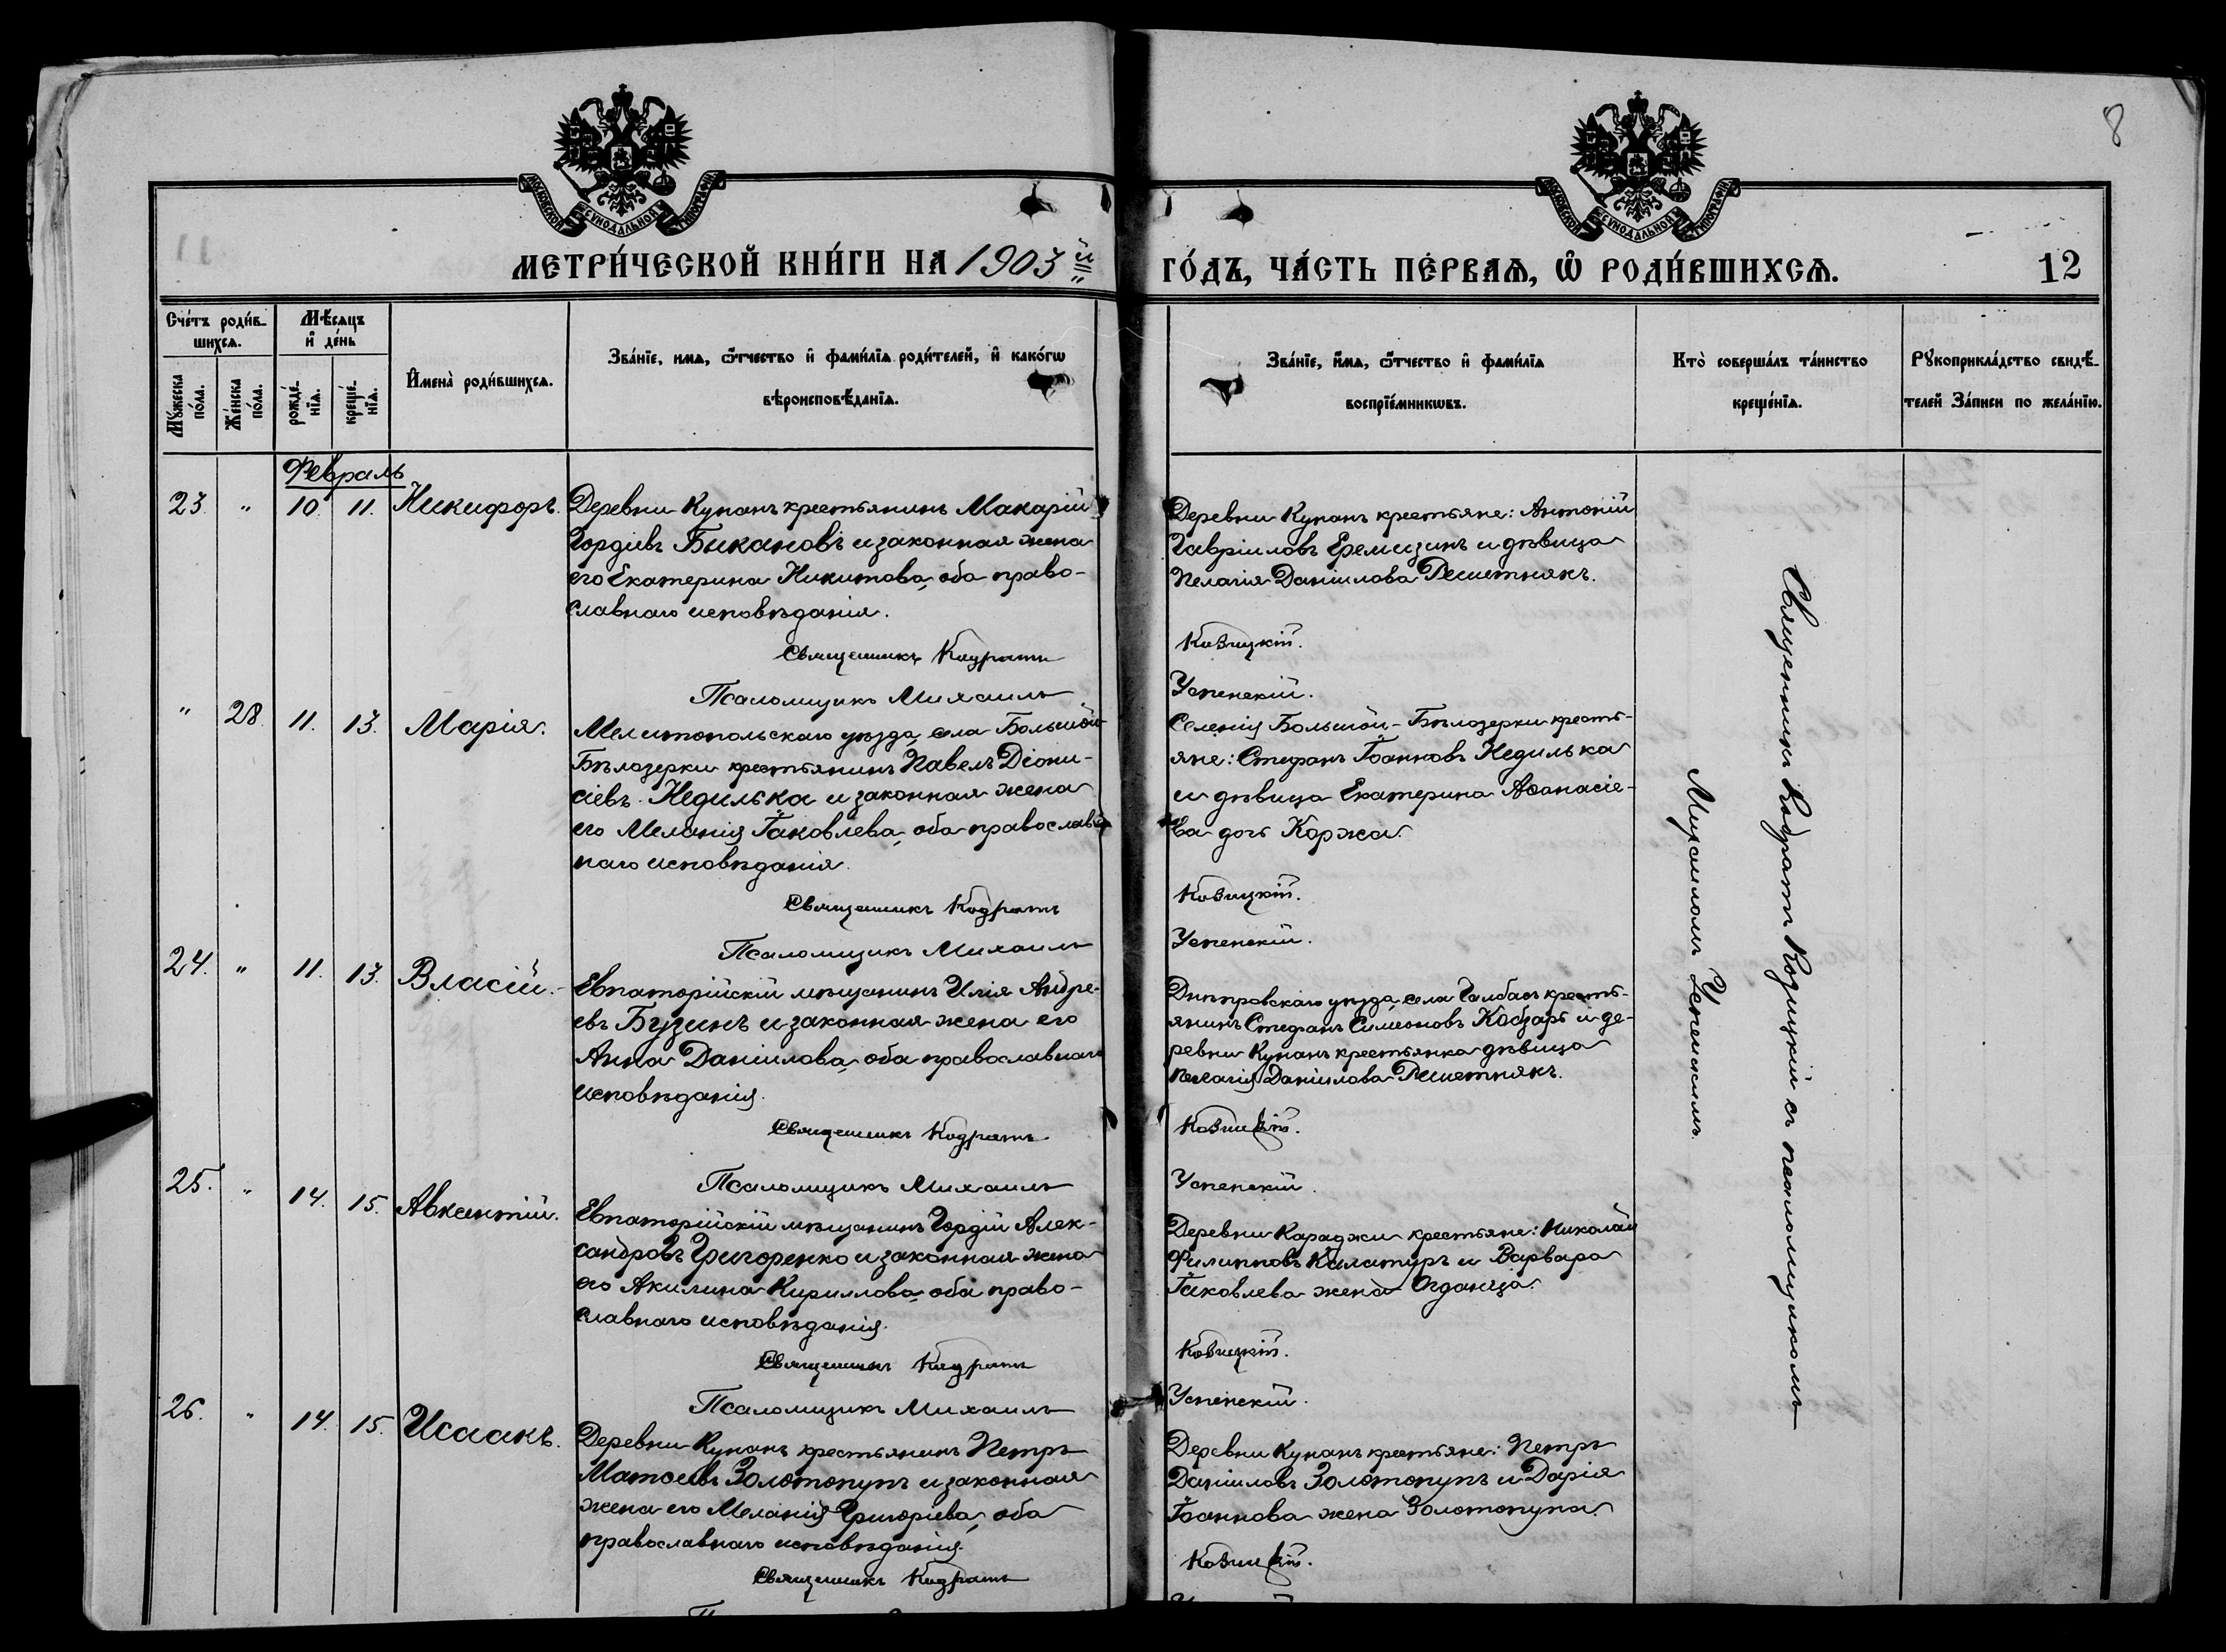 8
МОСКОВСКОЙ СѴНОДАЛЬНОЙ ТИПОГРАФІИ
МОСКОВСКОЙ СѴНОДАЛЬНОЙ ТИПОГРАФІИ
МЕТРИ́ЧЕСКОЙ КНИ́ГИ НА 1903й
ГО́ДЪ, ЧА́СТЬ ПЕ́РВАѦ, Ѡ҆ РОДИ́ВШИХСѦ.
12
Сче́тъ роди́в-
шихсѧ.
Мꙋ́жеска по́ла.
Же́нска по́ла.
Мѣ́сѧцъ
и҆ де́нь
рожде́-
нїѧ.
креще́-
нїѧ.
И҆мена̀ роди́вшихсѧ.
Зва́нїе, имѧ, ѻ҆́тчество и҆ фами́лїѧ роди́телей, и҆ како́гѡ
вѣроисповѣ́данїѧ.
Зва́нїе, и҆́мѧ, ѻ҆́тчество и҆ фами́лїѧ
воспрїе́мникѡвъ.
Кто̀ соверша́лъ та́инство
креще́нїѧ.
Рꙋкоприкла́дство свидѣ́-
телей За́писи по жела́нїю.
Февраль
23. " 10. 11. Никифоръ.
Деревни Купанъ крестьянинъ Макарій
Гордіевъ Бикановъ и законная жена
его Екатерина Никитова, оба право-
славнаго исповѣданія.
Священникъ Кодратъ
Псаломщикъ Михаилъ
Деревни Купанъ крестьяне: Антоній
Гавріиловъ Еремизинъ и дѣвица
Пелагія Даніилова Решетнякъ.
Козицкій.
Успенскій.
" 28. 11. 13. Марія.
Мелитопольскаго уѣзда, села Большой-
Бѣлозерки крестьянинъ Павелъ Діони-
сіевъ Недилька и законная жена
его Меланія Іаковлева, оба православ-
наго исповѣданія.
Священникъ Кодратъ
Псаломщикъ Михаилъ
Селенія Большой-Бѣлозерки кресть-
яне: Стефанъ Іоанновъ Недилька
и дѣвица Екатерина Аѳанасіе-
ва дочь Коржа.
Козицкій.
Успенскій.
24. " 11. 13. Власій.
Евпаторійскій мѣщанинъ Илія Андре-
евъ Бузинъ и законная жена его
Анна Даніилова, оба православнаго
исповѣданія.
Священникъ Кодратъ
Псаломщикъ Михаилъ
Днѣпровскаго уѣзда, села Чалбасъ кресть-
янинъ Стефанъ Симеоновъ Кобзарь и де-
ревни Купанъ крестьянка дѣвица
Пелагія Даніилова Решетнякъ.
Козицкій.
Успенскій.
25. " 14. 15. Авксентій.
Евпаторійскій мѣщанинъ Гордій Алек-
сандровъ Григоренко и законная жена
его Акилина Кириллова, оба право-
славнаго исповѣданія.
Священникъ Кодратъ
Псаломщикъ Михаилъ
Деревни Караджи крестьяне: Николай
Филипповъ и Варвара
Іаковлева жена
Козицкій.
Успенскій.
26. " 14. 15. Исаакъ.
Деревни Купанъ крестьянинъ Петръ
Матѳеевъ Золотопупъ и законная
жена его Меланія Григоріева, оба
православнаго исповѣданія.
Священникъ Кодратъ
Деревни Купанъ крестьяне: Петръ
Даніиловъ Золотопупъ и Дарія
Іоаннова жена Золотопупа.
Козицкій.
Священникъ Кодратъ Козицкій съ псаломщикомъ
Михаиломъ Успенскимъ.